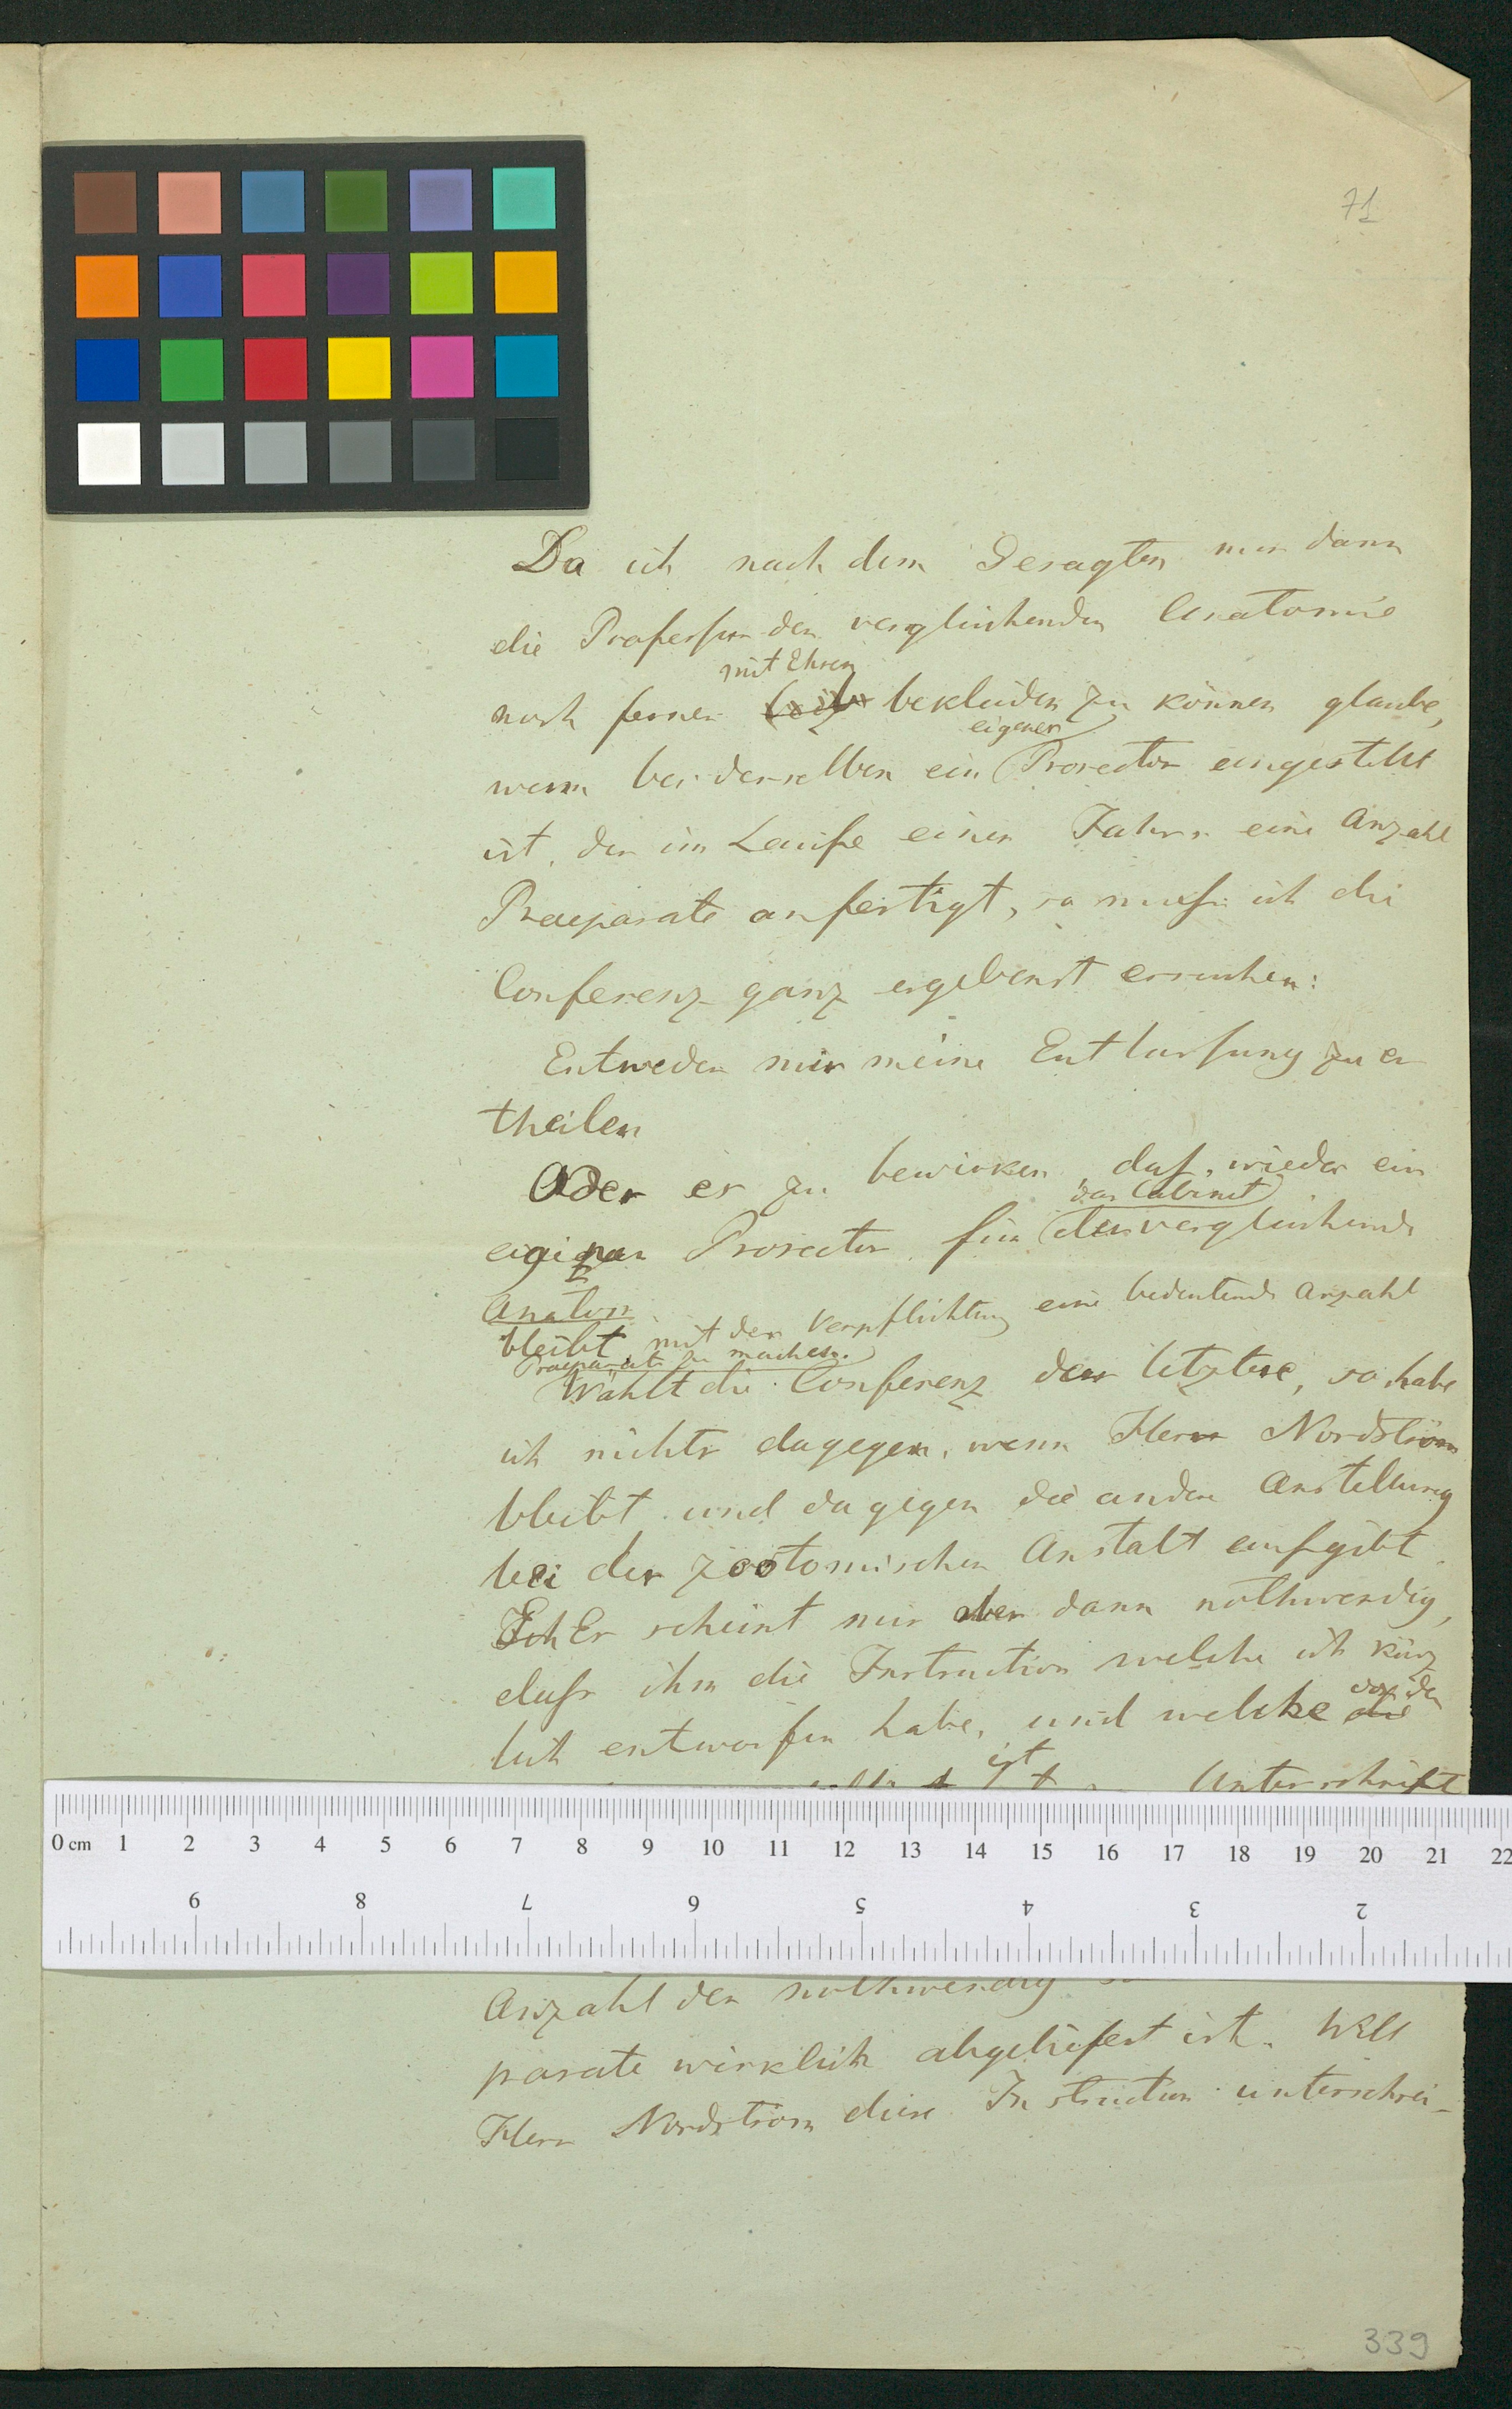 71
Da ich nach dem Gesagten nur dann
die Professur der vergleichenden Anatomie
mit Ehren
noch ferner bekleiden zu können glaube,
eigener
wenn bei derselben ein Prosector angestellt
ist, der im Laufe eines Jahres eine Anzahl
Praeparate anfertigt, so muss ich die
Conferenz ganz ergebenst ersuchen:
Entweder mir meine Entlassung zu er
theilen
Oder es zu bewirken dass wieder ein
das Cabinet
eigener Prosector für der vergleichende
Anatom
bleibt mit der Verpflichtung eine bedeutende Anzahl
Praeparate zu machen.
Wählt die Conferenz das letztere, so habe
ich nichts dagegen, wenn Herr Nordström
bleibt und dagegen die andere Anstellung
bei der zootomischen Anstalt aufgibt.
Ich Es scheint mir aber dann nothwendig,
dass ihm die Instruction welche ich kürz
von der
lich entworfen habe, und welche die
ist
Unterschrift
0 cm 1 2 3 4 5 6 7 8 9 10 11 12 13 14 15 16 17 18 19 20 21 22
9 8 7 6 5 4 3 2
Anzahl der nothwendig
parate wirklich abgeliefert ist. Will
Herr Nordström diese Instruction unterschrei-
339